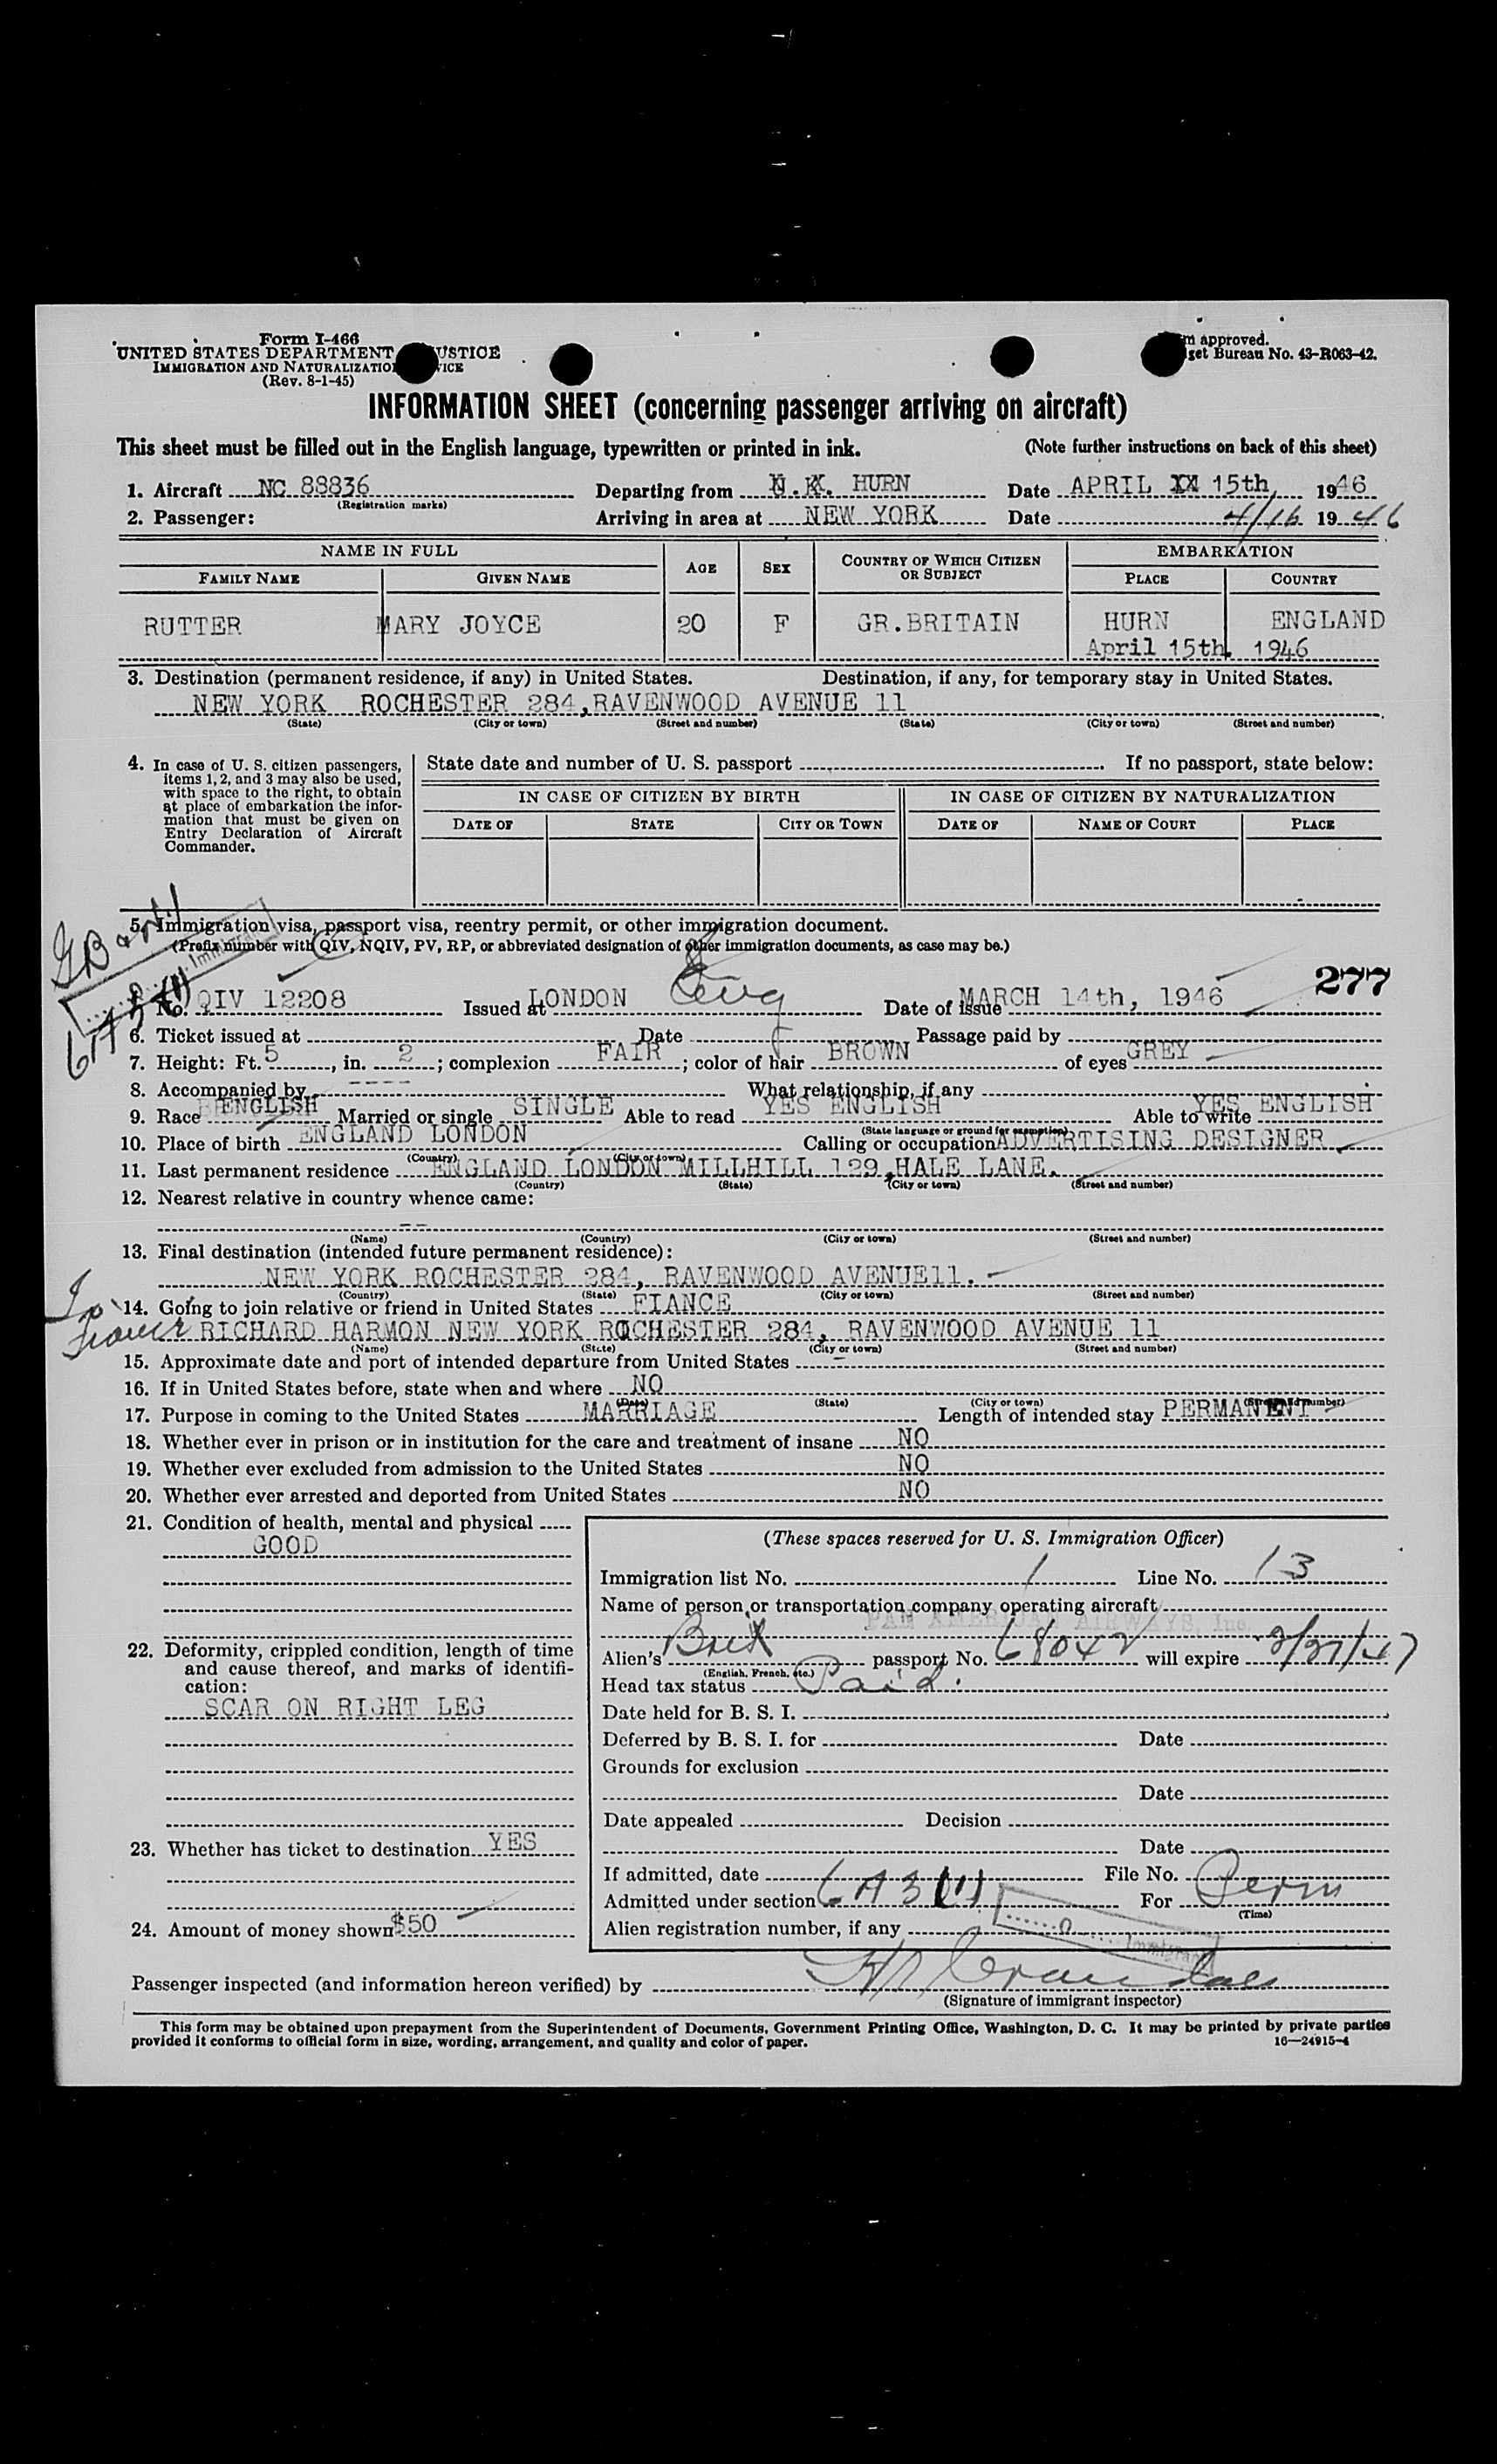 Form I-466
UNITED STATES DEPARTMENT JUSTICE
IMMIGRATION AND NATURALIZATION
(Rev. 8-1-45)
approved.
Bureau No. 43-R063-42.
INFORMATION SHEET (concerning passenger arriving on aircraft)
This sheet must be filled out in the English language, typewritten or printed in ink. (Note further instructions on back of this sheet)
1. Aircraft NC 88836 Departing from U.K. HURN Date APRIL 15th, 1946
(Registration marks)
2. Passenger: Arriving in area at NEW YORK Date 4/16 1946
NAME IN FULL EMBARKATION
FAMILY NAME GIVEN NAME AGE SEX COUNTRY OF WHICH CITIZEN OR SUBJECT PLACE COUNTRY
RUTTER MARY JOYCE 20 F GR.BRITAIN HURN ENGLAND
April 15th, 1946
3. Destination (permanent residence, if any) in United States. Destination, if any, for temporary stay in United States.
NEW YORK ROCHESTER 284,RAVENWOOD AVENUE 11
(State) (City or town) (Street and number) (State) (City or town) (Street and number)
4. In case of U. S. citizen passengers, items 1, 2, and 3 may also be used, with space to the right, to obtain at place of embarkation the information that must be given on Entry Declaration of Aircraft Commander.
State date and number of U. S. passport If no passport, state below:
IN CASE OF CITIZEN BY BIRTH IN CASE OF CITIZEN BY NATURALIZATION
DATE OF STATE CITY OR TOWN DATE OF NAME OF COURT PLACE
5. Immigration visa, passport visa, reentry permit, or other immigration document.
(Prefix number with QIV, NQIV, PV, RP, or abbreviated designation of other immigration documents, as case may be.)
277
No. QIV 12208 Issued at LONDON Date of issue MARCH 14th, 1946
6. Ticket issued at Date Passage paid by
7. Height: Ft. 5, in. 2; complexion FAIR; color of hair BROWN of eyes GREY
8. Accompanied by ---- What relationship, if any
9. Race ENGLISH Married or single SINGLE Able to read YES ENGLISH Able to write YES ENGLISH
(State language or ground for exemption)
10. Place of birth ENGLAND LONDON Calling or occupation ADVERTISING DESIGNER
(Country) (City or town)
11. Last permanent residence ENGLAND LONDON MILLHILL 129,HALE LANE.
(Country) (State) (City or town) (Street and number)
12. Nearest relative in country whence came:
--
(Name) (Country) (City or town) (Street and number)
13. Final destination (intended future permanent residence):
NEW YORK ROCHESTER 284, RAVENWOOD AVENUE11.
(Country) (State) (City or town) (Street and number)
14. Going to join relative or friend in United States FIANCE
RICHARD HARMON NEW YORK ROCHESTER 284, RAVENWOOD AVENUE 11
(Name) (State) (City or town) (Street and number)
15. Approximate date and port of intended departure from United States -
16. If in United States before, state when and where NO
(Date) (State) (City or town) (Street and number)
17. Purpose in coming to the United States MARRIAGE Length of intended stay PERMANENT
18. Whether ever in prison or in institution for the care and treatment of insane NO
19. Whether ever excluded from admission to the United States NO
20. Whether ever arrested and deported from United States NO
21. Condition of health, mental and physical
GOOD
22. Deformity, crippled condition, length of time and cause thereof, and marks of identification:
SCAR ON RIGHT LEG
23. Whether has ticket to destination YES
24. Amount of money shown $50
(These spaces reserved for U. S. Immigration Officer)
Immigration list No. 1 Line No. 13
Name of person or transportation company operating aircraft
PAN AMERICAN AIRWAYS, Inc.
Alien's Brit passport No. 68042 will expire 2/27/47
(English, French, etc.)
Head tax status Paid.
Date held for B. S. I.
Deferred by B. S. I. for Date
Grounds for exclusion
Date
Date appealed Decision
Date
If admitted, date File No.
Admitted under section 6A3(1) For Perm
(Time)
Alien registration number, if any
Immigrant
Passenger inspected (and information hereon verified) by
(Signature of immigrant inspector)
This form may be obtained upon prepayment from the Superintendent of Documents, Government Printing Office, Washington, D. C. It may be printed by private parties
provided it conforms to official form in size, wording, arrangement, and quality and color of paper. 16—24915-4